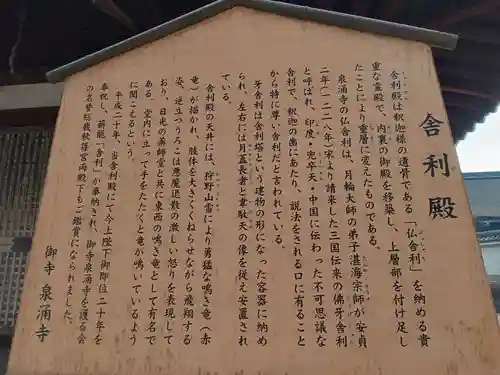 舎利殿
舎利殿は釈迦様の遺骨である「仏舎利」を納める貴
重な霊殿で、内裏の御殿を移築し、上層部を付け足し
たことにより重層に変えたものである。
泉涌寺の仏舎利は、月輪大師の弟子湛海宗師が安貞
二年(一二二八年)宋より請来した三国伝来の佛牙舎利
と呼ばれ、印度・兜卒天・中国に伝わった不可思議な
舎利で、釈迦の歯にあたり、説法をされる口に有ること
から特に尊い舎利だと言われている。
牙舎利は舎利塔という建物の形になった容器に納め
られ、左右には月蓋長者と韋駄天の像を従え安置され
ている。
舎利殿の天井には、狩野山雪により勇猛な鳴き竜(赤
竜)が描かれ、肢体を大きくくねらせながら飛翔する
姿、逆立つうろこは悪魔退散の激しい怒りを表現して
おり、日光の薬師堂と共に東西の鳴き竜として有名で
ある。堂内に立って手をたたくと竜が鳴いているよう
に聞こえるという。
平成二十年、当舎利殿にて今上陛下御即位二十年を
奉祝し、薪能「舎利」が奉納され、御寺泉涌寺を護る会
の名誉総裁秋篠宮両殿下もご鑑賞になられました。
御寺 泉涌寺